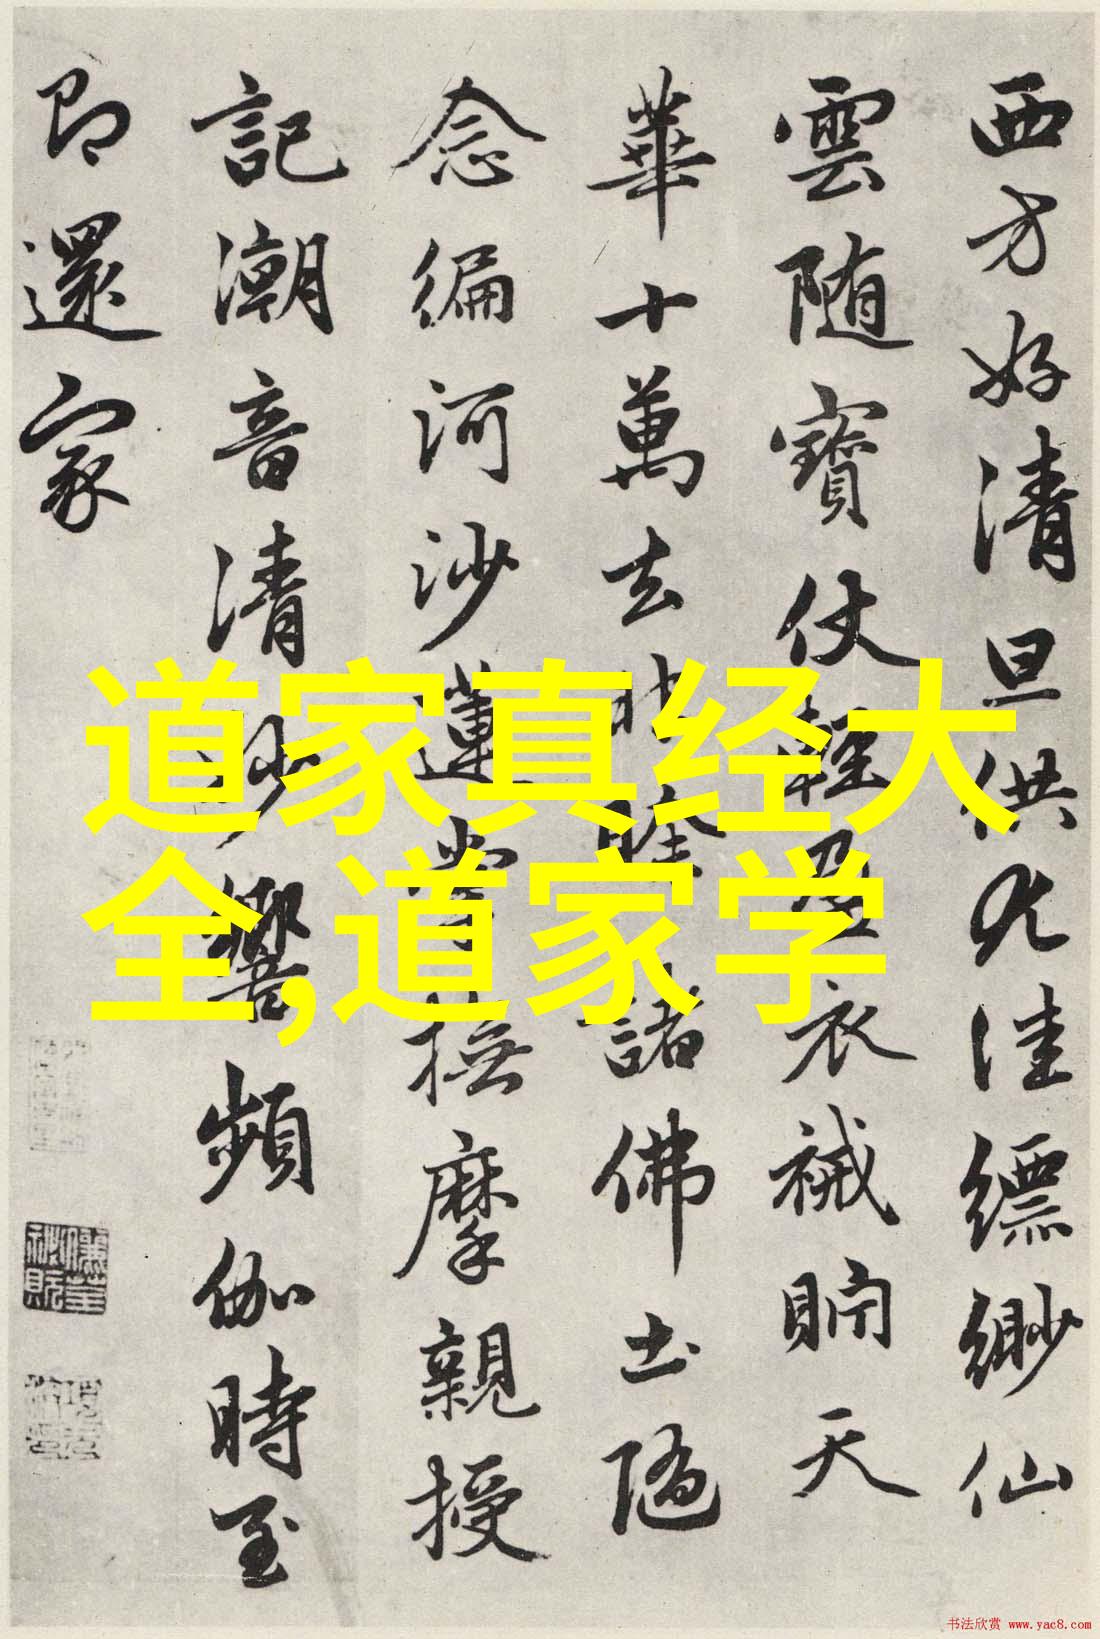 西方好清旦供尤佳縹緲仙
雲随寶仗輕盈衣祴貯天
華十萬去時賒諸佛土隨
念編河沙蓮掌撫摩親授
記潮音清妙響頻伽時至
即還家
道家真经大
全,道家学
书法欣赏 www.yac8.com